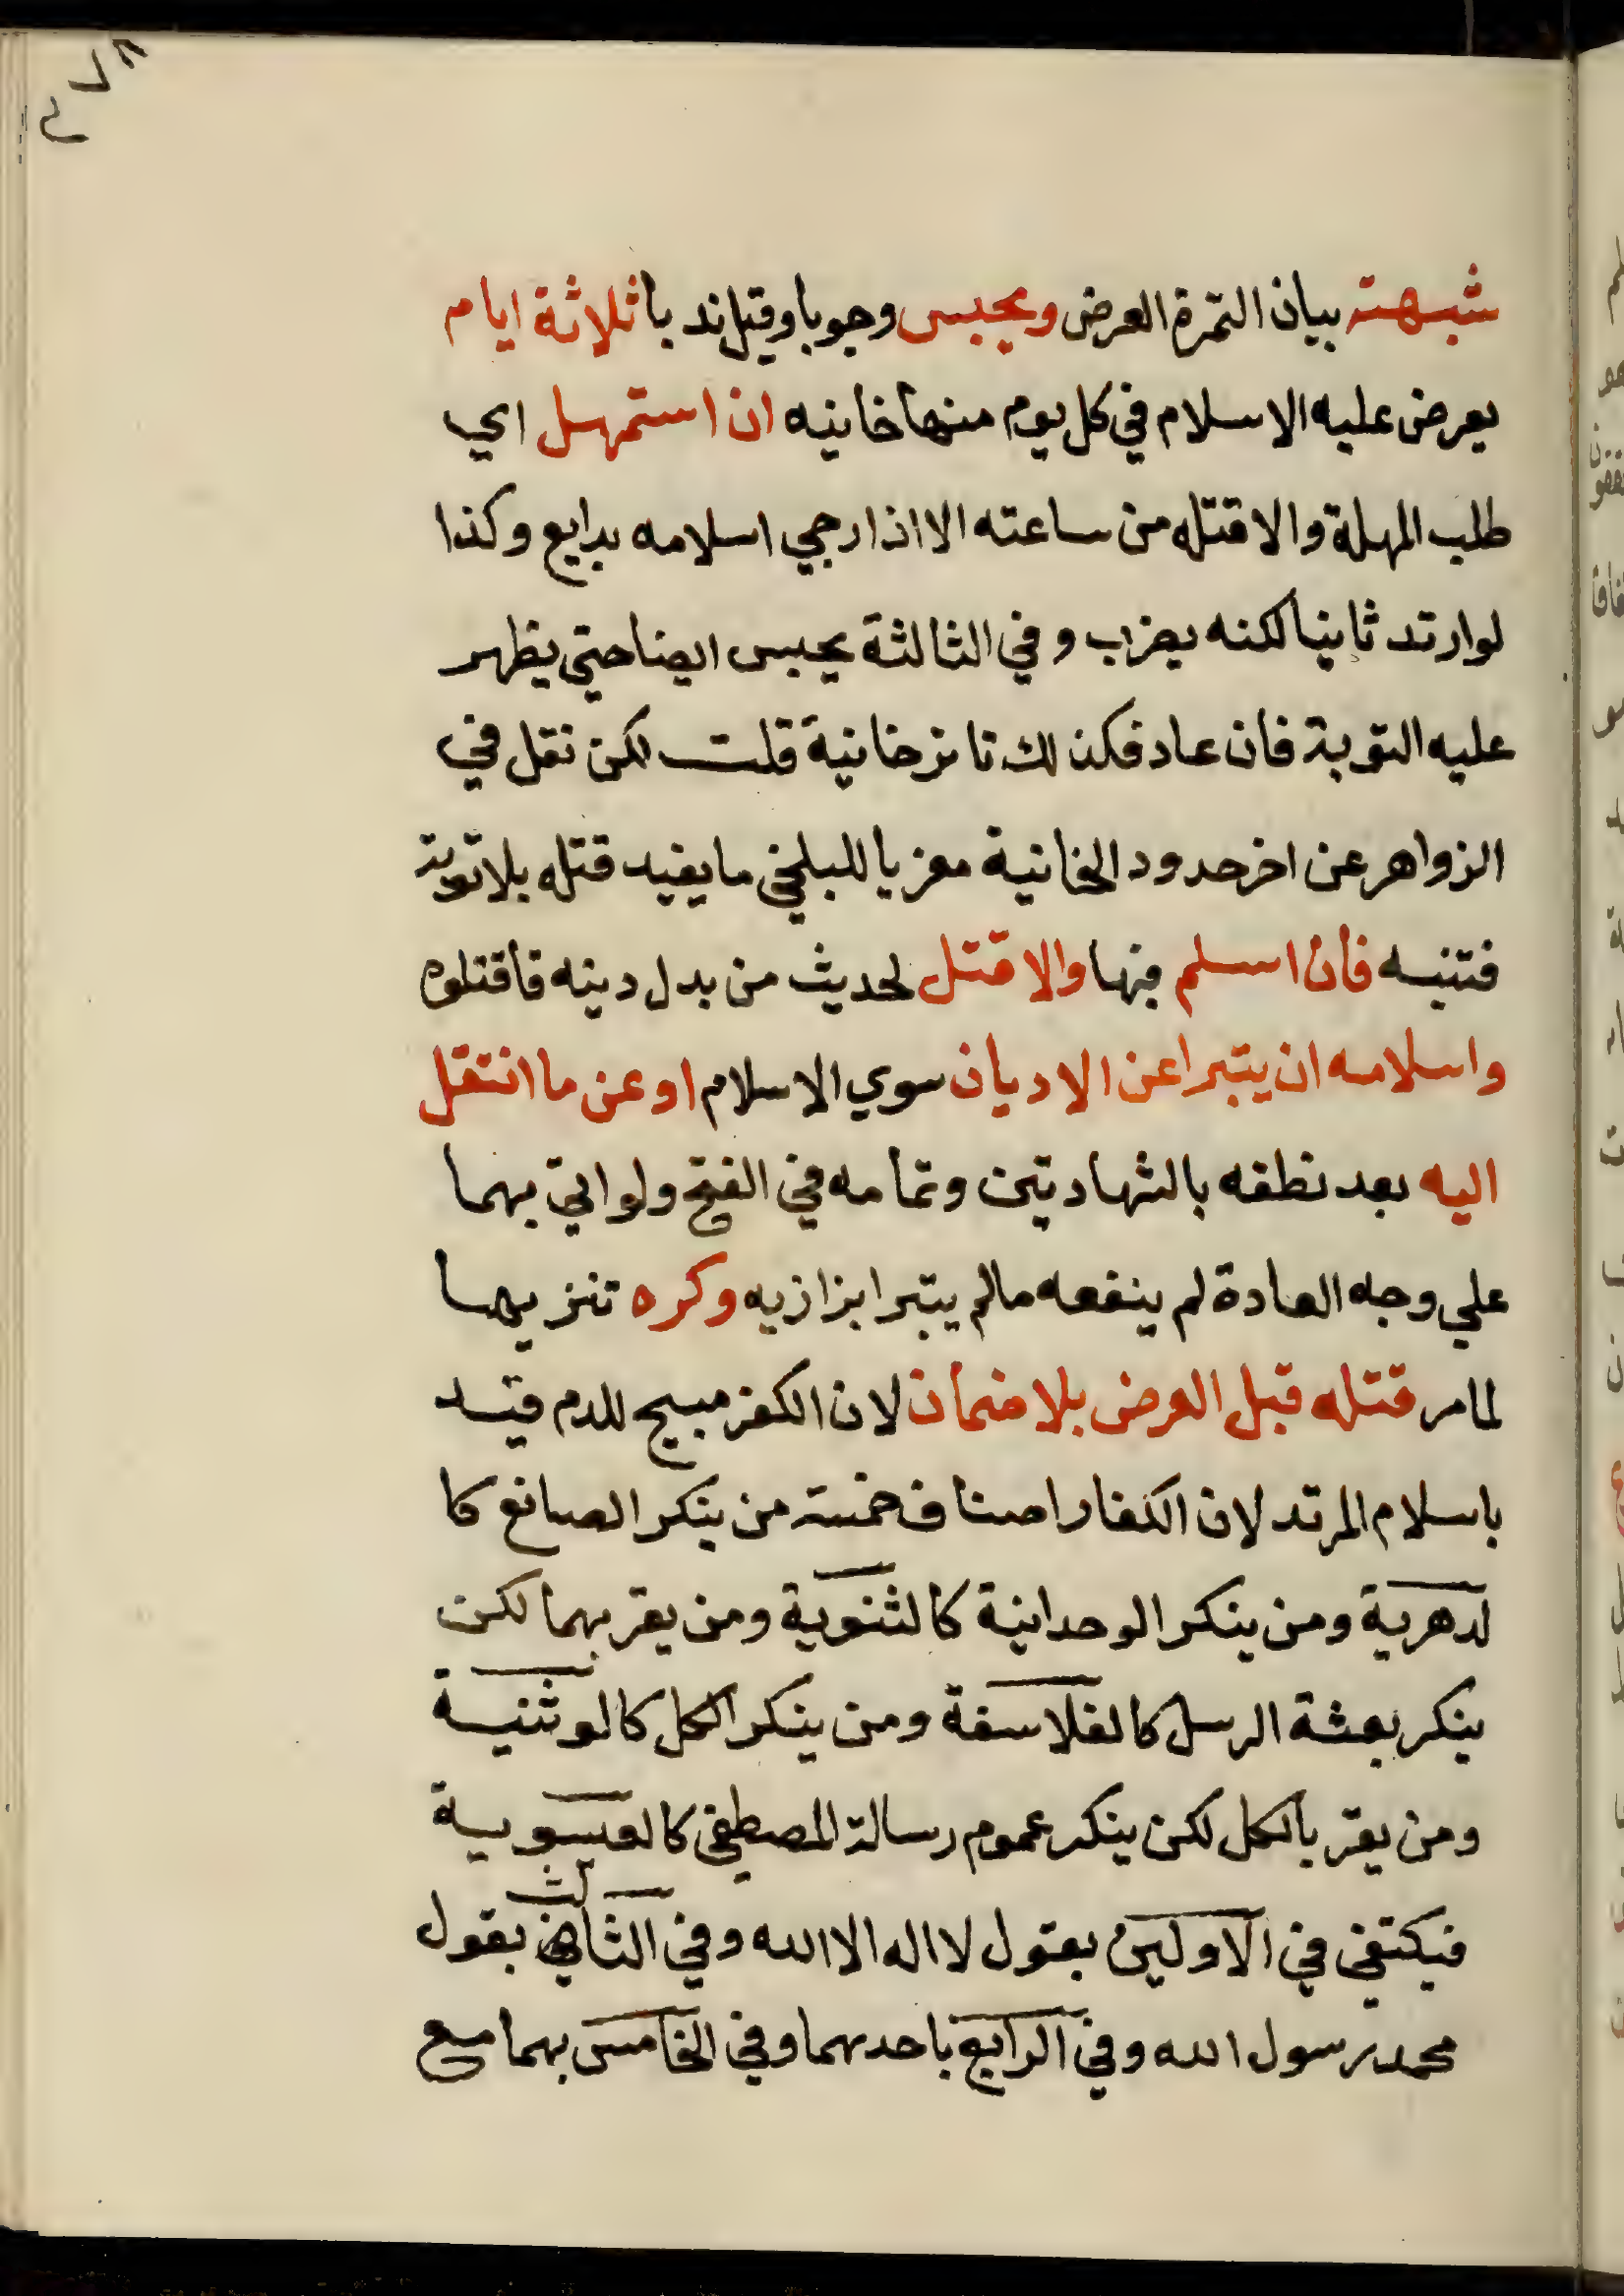 شبهته بيان الثمرة العرض ويحبس وجوبا وقيل ند با ثلاثة ايام
يعرض عليه الاسلام في كل يوم منها خانيه ان استمهل اي
طلب المهلة والا قتله من ساعته الا اذا رجي اسلامه بدايع وكذا
لو ارتد ثانيا لكنه يضرب وفي الثالثة يحبس ايضا حتي يظهر
عليه التوبة فان عاد فكذلك تاترخانية قلت لكن نقل في
الزواهر عن اخر حدود الخانية معزيا للبلخي ما يفيد قتله بلا توبة
فتنبه فان اسلم فبها والا قتل لحديث من بدل دينه فاقتلوه
واسلامه ان يتبرا عن الاديان سوي الاسلام او عن ما انتقل
اليه بعد نطقه بالشهادتين وتمامه في الفتح ولو اتي بهما
علي وجه العادة لم ينفعه مالم يتبرا بزازيه وكره تنزيها
لما مر قتله قبل العرض بلا ضمان لان الكفر مبيح للدم قيد
باسلام المرتد لان الكفار اصناف خمسة من ينكر الصانع كا
لدهرية ومن ينكر الوحدانية كالثنوية ومن يقر بهما لكن
ينكر بعثة الرسل كالفلاسفة ومن ينكر الكل كالوثنية
ومن يقر بالكل لكن ينكر عموم رسالة المصطفي كالعيسوية
فيكتفي في الاولين بقول لا اله الا الله وفي الثالث بقول
محمد رسول الله وفي الرابع باحدهما وفي الخامس بهما مع